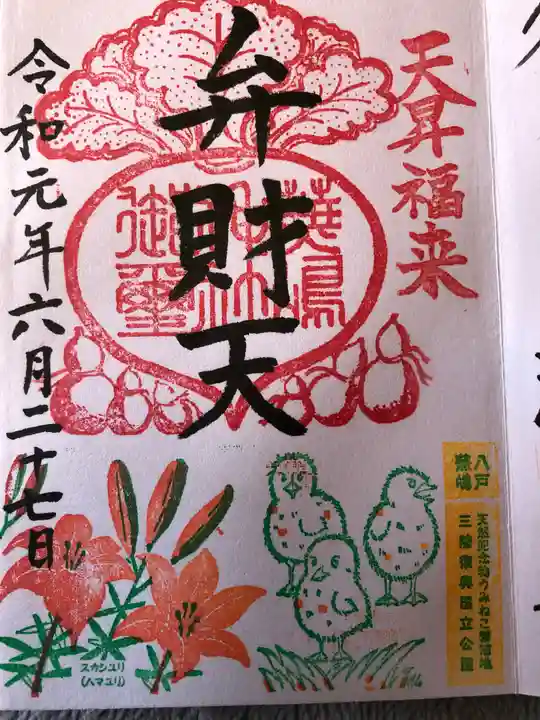 天昇福来
弁財天
令和元年六月二十七日
八戸
蕪嶋
天然記念物うみねこ蕃殖地
三陸復興国立公園
スカシユリ
(ハマユリ)